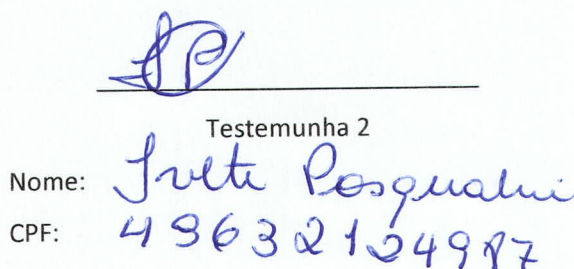 Testemunha 2
Nome: Ivete Pasqualini
CPF: 49632124987